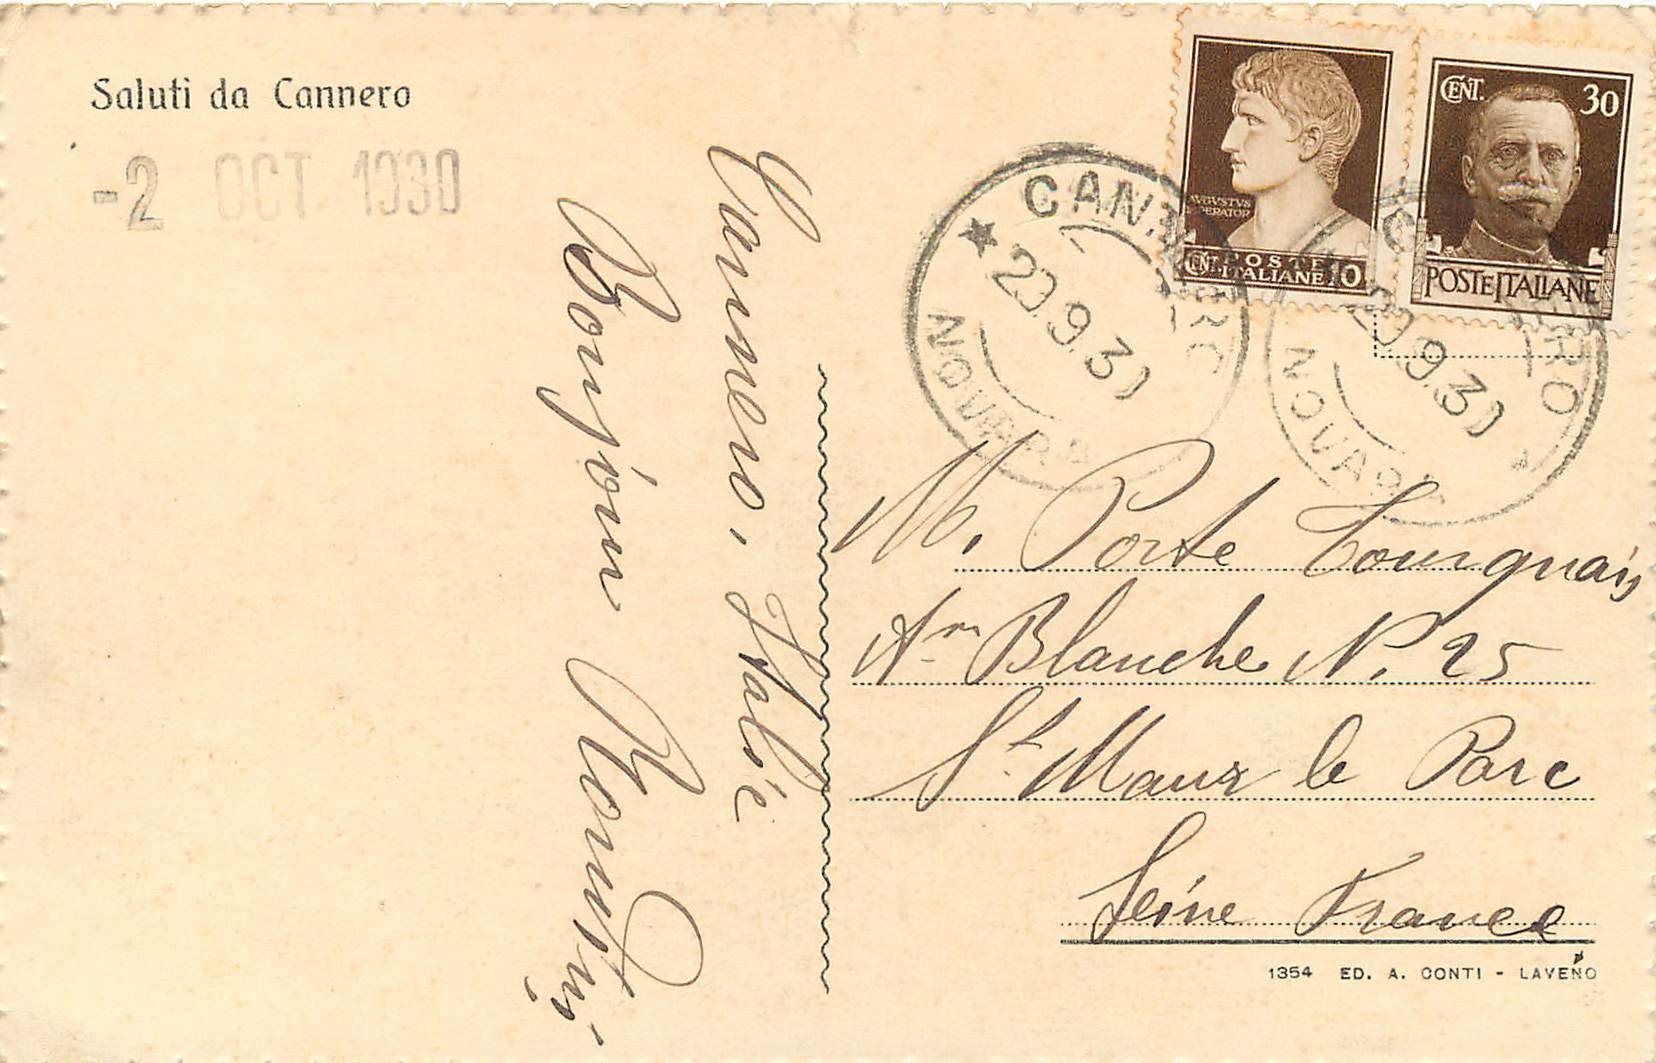 Saluti da Cannero
-2 OCT. 1930
Cannero, Italie
Bonjour
CANNERO
20.9.30
NOVARA
CANNERO
20.9.30
NOVARA
AVGVSTVS
IMPERATOR
POSTE
CENT. ITALIANE 10
CENT. 30
POSTE ITALIANE
M. Porte
Blanche N. 25
St Maur le Parc
Seine France
1354 ED. A. CONTI - LAVENO